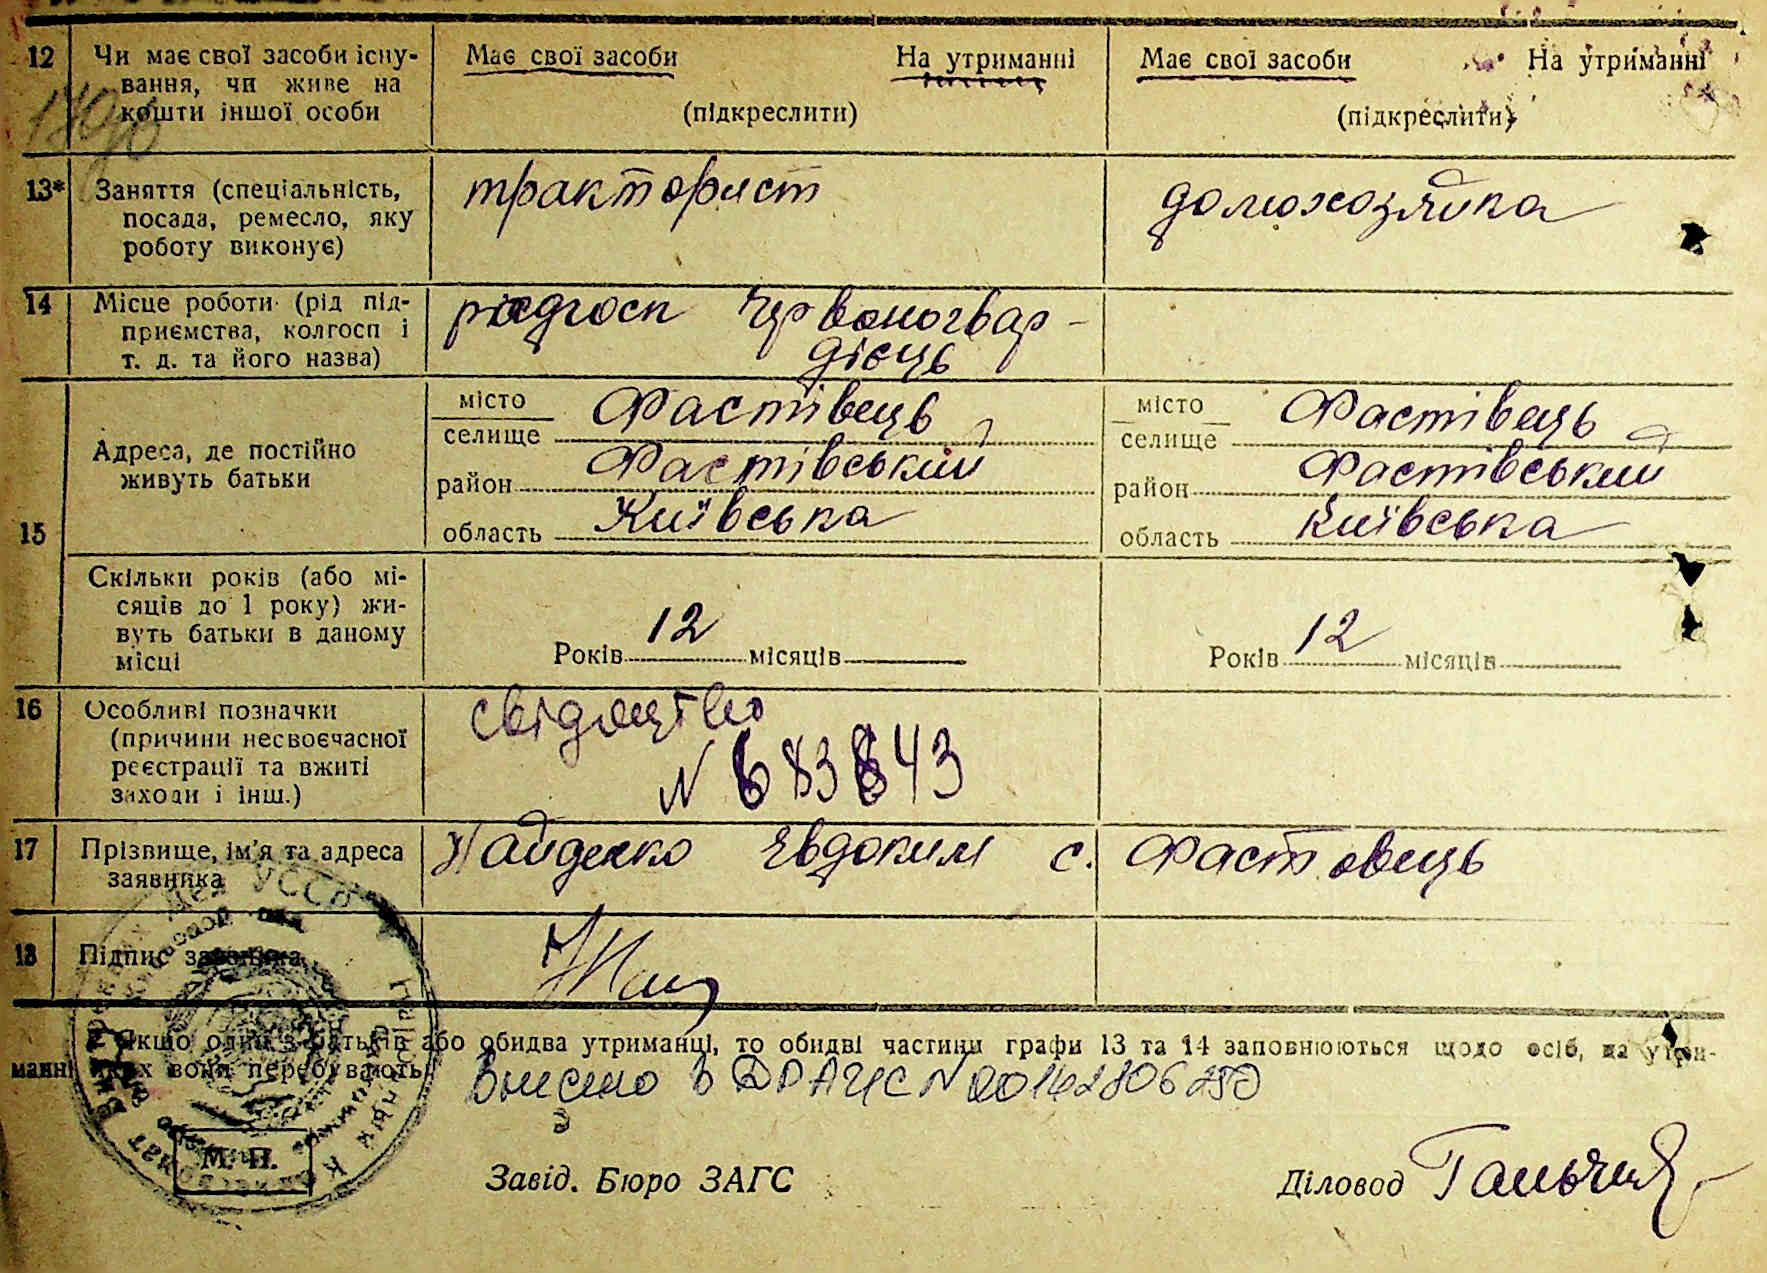 12 Чи має свої засоби існу- Має свої засоби На утриманні Має свої засоби На утриманні
вання, чи живе на
кошти іншої особи (підкреслити) (підкреслити)
13* Заняття (спеціальність, тракторист домохозяйка
посада, ремесло, яку
роботу виконує)
14 Місце роботи (рід під- радгосп Червоногвар-
приємства, колгосп і дієць
т. д. та його назва)
15 Адреса, де постійно живуть батьки
місто Фастівець місто Фастівець
селище селище
район Фастівський район Фастівський
область Київська область Київська
Скільки років (або мі-
сяців до 1 року) жи-
вуть батьки в даному
місці
Років 12 місяців Років 12 місяців
16 Особливі позначки свідоцтво
(причини несвоєчасної N 683843
реєстрації та вжиті
заходи і інш.)
17 Прізвище, ім'я та адреса Найденко Евдоким с. Фастовець
заявника
18 Підпис заявника
* Якщо один з батьків або обидва утриманці, то обидві частини графи 13 та 14 заповнюються щодо осіб, на утри-
манні яких вони перебувають
Внесено в ДРАЦС N 00162806250
М. П.
Завід. Бюро ЗАГС Діловод